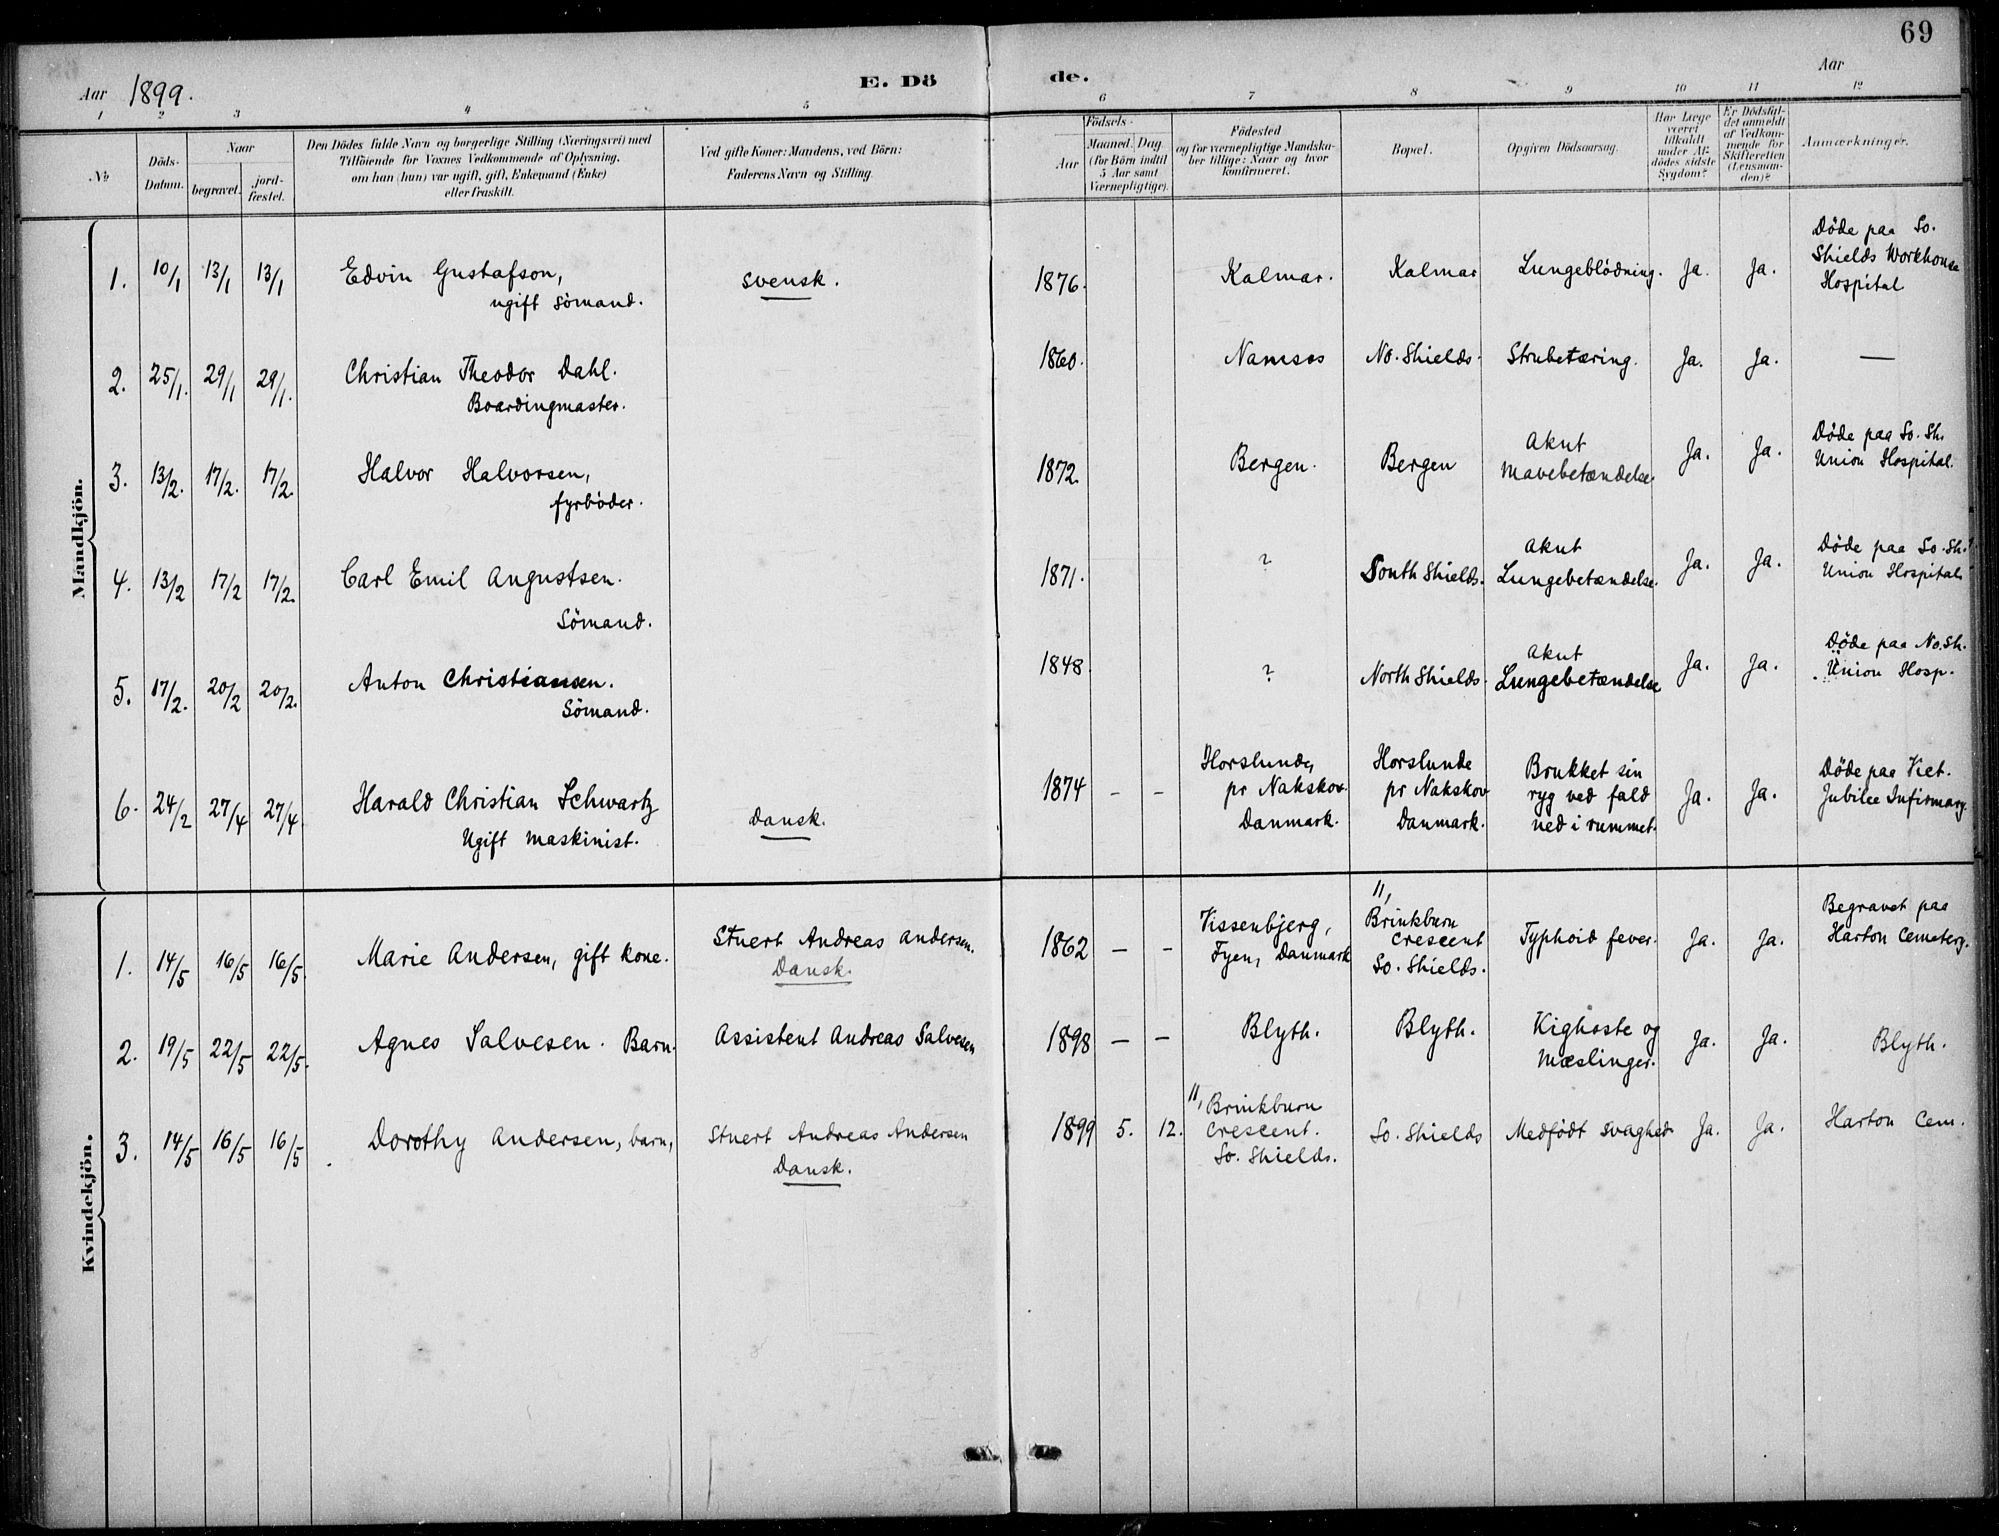 69
Aar 1899.
E. Dö de.
Aar
1 2 3 4 5 6 7 8 9 10 11 12
№
Döds-
Datum.
Naar
begravet.
jord-
fæstet.
Den Dödes fulde Navn og borgerlige Stilling (Næringsvei) med
Tilföiende for Voxnes Vedkommende af Oplysning,
om han (hun) var ugift, gift, Enkemand (Enke)
eller fraskilt.
Ved gifte Koner: Mandens, ved Börn:
Faderens Navn og Stilling.
Födsels-
Aar
Maaned. Dag
(for Börn indtil
5 Aar samt
Værnepligtige).
Födested
og for værnepligtige Mandska-
ber tillige: Naar og hvor
konfirmeret.
Bopæl.
Opgiven Dödsaarsag.
Har Læge
været
tilkaldt
under Af-
dödes sidste
Sygdom?
Er Dödsfal-
det anmeldt
af Vedkom-
mende for
Skifteretten
(Lensman-
den)?
Anmærkninger.
Mandkjön.
1. 10/1 13/1 13/1 Edvin Gustafson, svensk. 1876. Kalmar. Kalmar Lungeblödning. Ja. Ja. Döde paa So.
ugift Sömand. Shields Workhouse
Hospital
2. 25/1. 29/1 29/1. Christian Theodor Dahl. 1860. Namsos No. Shields. Strubetæring. Ja. Ja. —
Boardingmaster.
3. 13/2. 17/2. 17/2. Halvor Halvorsen, 1872. Bergen. Bergen Akut Ja. Ja. Döde paa So. Sh.
fyrböder. Mavebetændelse. Union Hospital.
4. 13/2 17/2 17/2. Carl Emil Augustsen. 1871. ? South Shields. Akut Ja. Ja. Döde paa So. Sh.
Sömand. Lungebetændelse. Union Hospital
5. 17/2. 20/2 20/2. Anton Christiansen. 1848. ? North Shields. Akut Ja. Ja. Döde paa No. Sh.
Sömand. Lungebetændelse Union Hosp.
6. 24/2 27/4 27/4. Harald Christian Schwartz dansk. 1874 – – Horslunde, Horslunde Brukket sin Ja. Ja. Döde paa Vict.
Ugift maskinist. pr Nakskov. pr Nakskov ryg ved fald Jubilee Infirmary.
Danmark. Danmark. ned i rummet.
Kvindekjön.
1. 14/5 16/5 16/5. Marie Andersen, gift kone. Stuert Andreas Andersen. 1862 – – Vissenbjerg, 11, Brinkburn Typhoid fever. Ja. Ja. Begravet paa
Dansk. Fyen, Danmark Crescent Harton Cemetery.
So. Shields.
2. 19/5 22/5 22/5. Agnes Salvesen. Barn. Assistent Andreas Salvesen 1898 – – Blyth. Blyth. Kighoste og Ja. Ja. Blyth.
Mæslinger.
3. 14/5 16/5 16/5 Dorothy Andersen, barn, Stuert Andreas Andersen 1899 5. 12. 11, Brinkburn So. Shields Medfödt svaghed Ja. Ja. Harton Cem.
Dansk. Crescent.
So. Shields.